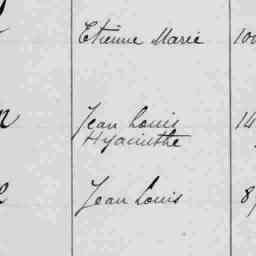 Etienne Marie 100
Jean Louis 14
Hyacinthe
Jean Louis